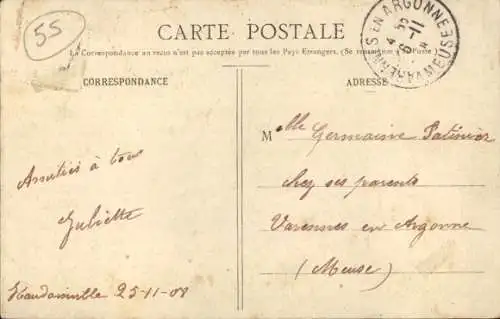 55
CARTE POSTALE
La Correspondance au recto n'est pas acceptée par tous les Pays Etrangers. (Se renseigner à la Poste)
CORRESPONDANCE
ADRESSE
VARENNES EN ARGONNE
MEUSE
Mlle Germaine
chez ses parents
Varennes en Argonne
(Meuse)
Amitiés à tous
Juliette
Haudainville 25-11-08